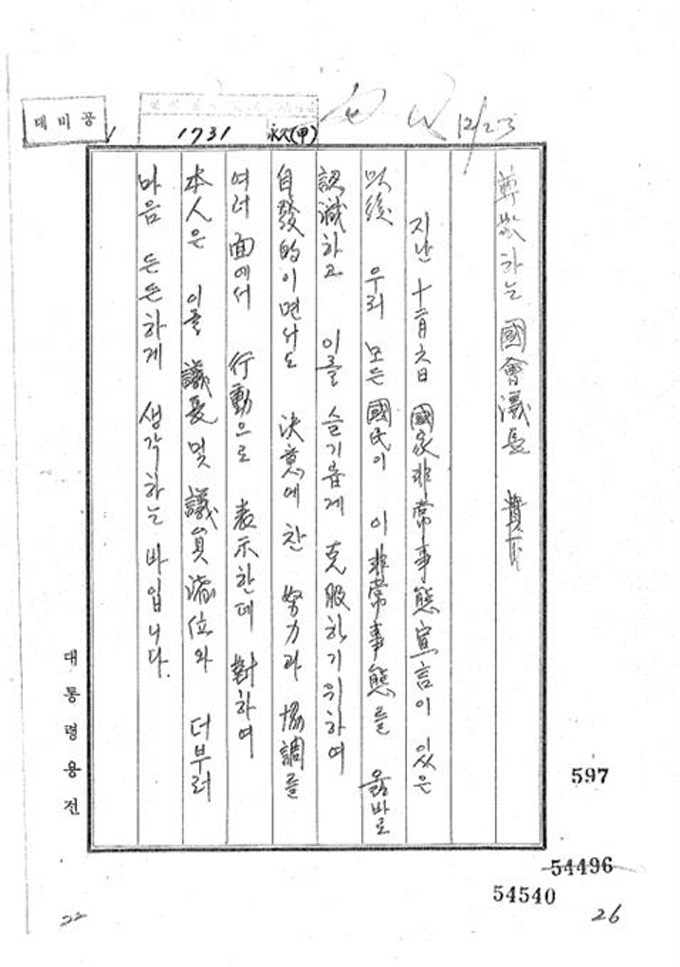 대비공
1731 永久(甲)
12/23
尊敬하는 國會議長 貴下
지난 十二月 六日 國家非常事態宣言이 있은
以後 우리 모든 國民이 이 非常事態를 옳바로
認識하고 이를 슬기롭게 克服하기 위하여
自發的이면서도 決意에 찬 努力과 協調를
여러 面에서 行動으로 表示한데 對하여
本人은 이를 議長 및 議員 諸位와 더부러
마음 든든하게 생각하는 바입니다.
대통령용전
597
54496
54540
22
26